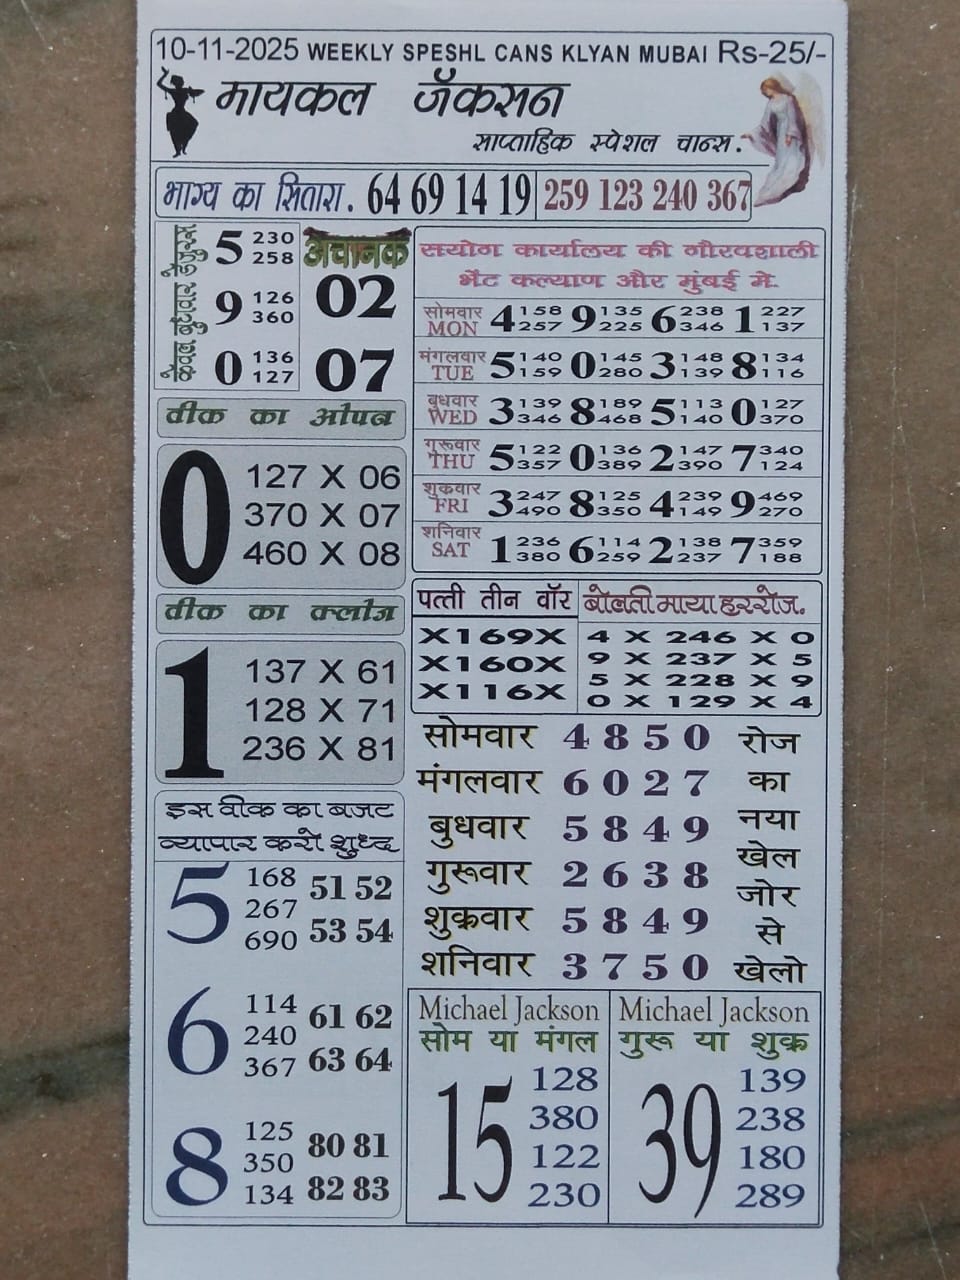 10-11-2025 WEEKLY SPESHL CANS KLYAN MUBAI Rs-25/-
मायकल जॅकसन
साप्ताहिक स्पेशल चान्स.
भाग्य का सितारा. 64 69 14 19 259 123 240 367
केवल बुधवार हेतुरास
5 230 258
9 126 360
0 136 127
अचानक
02
07
सयोग कार्यालय की गौरवशाली
भेंट कल्याण और मुंबई मे.
सोमवार MON 4 158 257 9 135 225 6 238 346 1 227 137
मंगलवार TUE 5 140 159 0 145 280 3 148 139 8 134 116
बुधवार WED 3 139 346 8 189 468 5 113 140 0 127 370
गुरूवार THU 5 122 357 0 136 389 2 147 390 7 340 124
शुक्रवार FRI 3 247 490 8 125 350 4 239 149 9 469 270
शनिवार SAT 1 236 380 6 114 259 2 138 237 7 359 188
वीक का ओपन
0
127 X 06
370 X 07
460 X 08
वीक का क्लोज
1
137 X 61
128 X 71
236 X 81
पत्ती तीन वॉर
X169X
X160X
X116X
बोलती माया हररोज.
4 X 246 X 0
9 X 237 X 5
5 X 228 X 9
0 X 129 X 4
सोमवार 4 8 5 0
मंगलवार 6 0 2 7
बुधवार 5 8 4 9
गुरूवार 2 6 3 8
शुक्रवार 5 8 4 9
शनिवार 3 7 5 0
रोज
का
नया
खेल
जोर
से
खेलो
इस वीक का बजट
व्यापार करो शुध्द
5 168 267 690 51 52 53 54
6 114 240 367 61 62 63 64
8 125 350 134 80 81 82 83
Michael Jackson
सोम या मंगल
15
128
380
122
230
Michael Jackson
गुरू या शुक्र
39
139
238
180
289